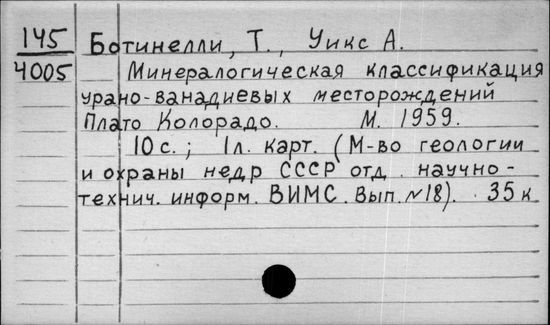 145 Ботинелли, Т., Уикс А.
4005 Минералогическая классификация
урано-ванадиевых месторождений
Плато Колорадо. М. 1959.
10 с.; 1 л. карт. (М-во геологии
и охраны недр СССР отд. научно-
технич. информ. ВИМС. Вып. №18). 35 к